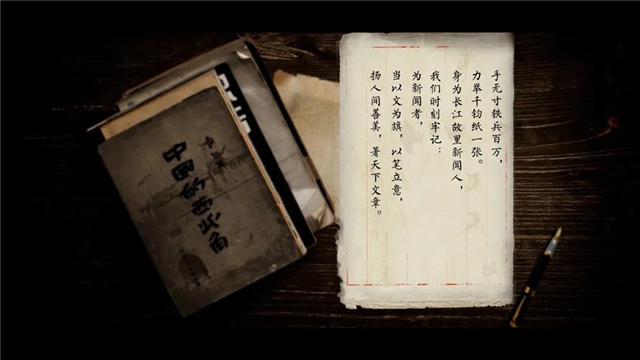 手无寸铁兵百万，
力举千钧纸一张。
身为长江故里新闻人，
我们时刻牢记：
为新闻者，
当以文为旗，以笔立意，
扬人间善美，著天下文章。
中国的西北角